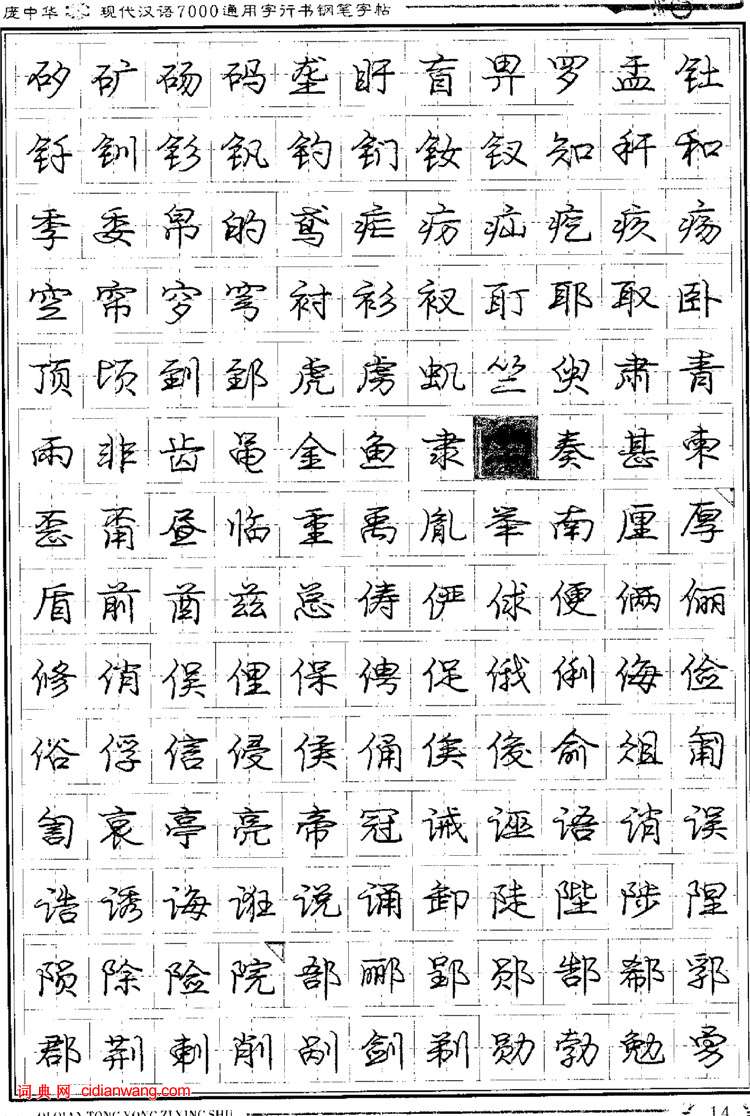 庞中华 现代汉语7000通用字行书钢笔字帖
矽 矿 砀 码 垄 盱 盲 畀 罗 盂 钍
钎 钏 钐 钒 钓 钔 钕 钗 知 秆 和
季 委 帛 的 鸢 疟 疠 疝 疙 疚 疡
空 帘 穸 穹 衬 衫 衩 耵 耶 取 卧
顶 顷 到 郅 虎 虏 虬 竺 臾 肃 青
雨 非 齿 黾 金 鱼 隶 奏 甚 柬
恶 甭 昼 临 重 禹 胤 举 南 厘 厚
盾 前 酋 兹 总 俦 俨 俅 便 俩 俪
修 俏 俣 俚 保 俜 促 俄 俐 侮 俭
俗 俘 信 侵 侯 俑 俟 俊 俞 俎 匍
訇 哀 亭 亮 帝 冠 诫 诬 语 诮 误
诰 诱 诲 诳 说 诵 卸 陡 陛 陟 陧
陨 除 险 院 郚 郦 郢 郧 郜 郗 郛
郡 荆 刺 削 剐 剑 剃 勋 勃 勉 勇
词典网:cidianwang.com
14